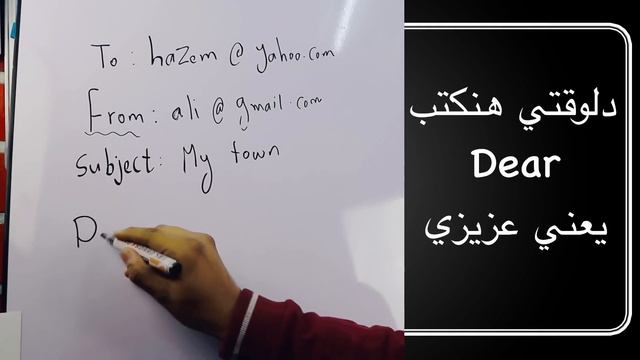 To : hazem @ yahoo.com
From : ali @ gmail.com
Subject : My town
D
دلوقتي هنكتب
Dear
يعني عزيزي